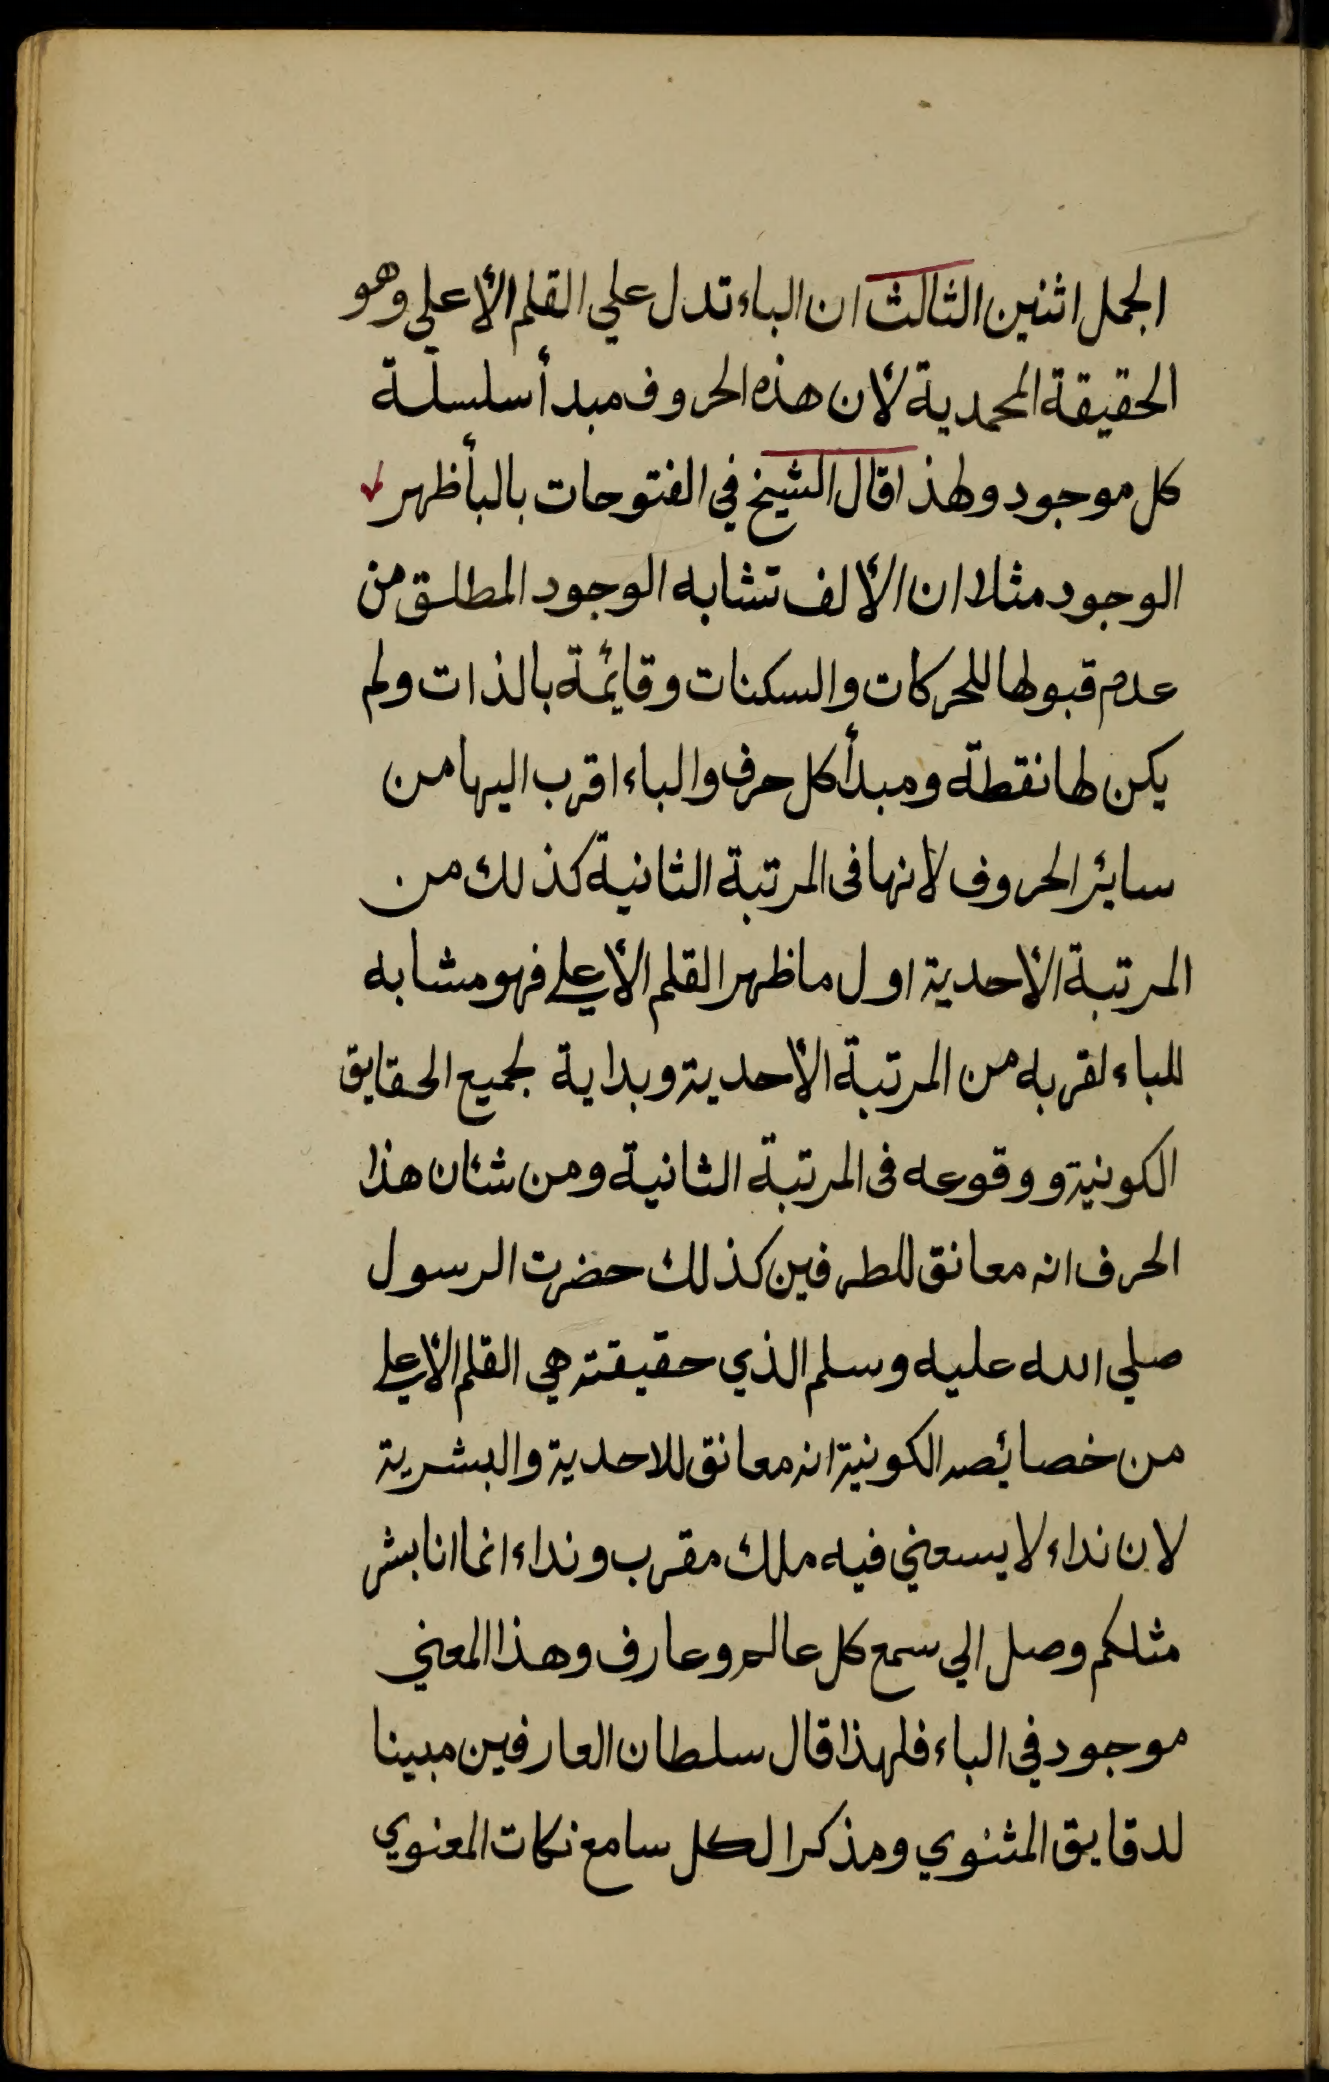 الجمل اثنين الثالث ان الباء تدل علي القلم الأعلي وهو
الحقيقة المحمدية لأن هذه الحروف مبدأ سلسلة
كل موجود ولهذا قال الشيخ في الفتوحات بالبأ ظهر
الوجود مثلا ان الألف تشابه الوجود المطلق من
عدم قبولها للحركات والسكنات وقائمة بالذات ولم
يكن لها نقطة ومبدأ كل حرف والباء اقرب اليها من
سائر الحروف لانها فى المرتبة الثانية كذلك من
المرتبة الأحدية اول ما ظهر القلم الأعلي فهو مشابه
للباء لقربه من المرتبة الأحدية وبداية لجميع الحقايق
الكونية ووقوعه فى المرتبة الثانية ومن شئان هذا
الحرف انه معانق للطرفين كذلك حضرت الرسول
صلي الله عليه وسلم الذي حقيقته هي القلم الأعلي
من خصائصه الكونية انه معانق للاحدية والبشرية
لان نداء لا يسعني فيه ملك مقرب ونداء انما انا بشر
مثلكم وصل الي سمع كل عالم وعارف وهذا المعني
موجود في الباء فلهذا قال سلطان العارفين مبينا
لدقايق المثنوي ومذكرا لكل سامع نكات المعنوي